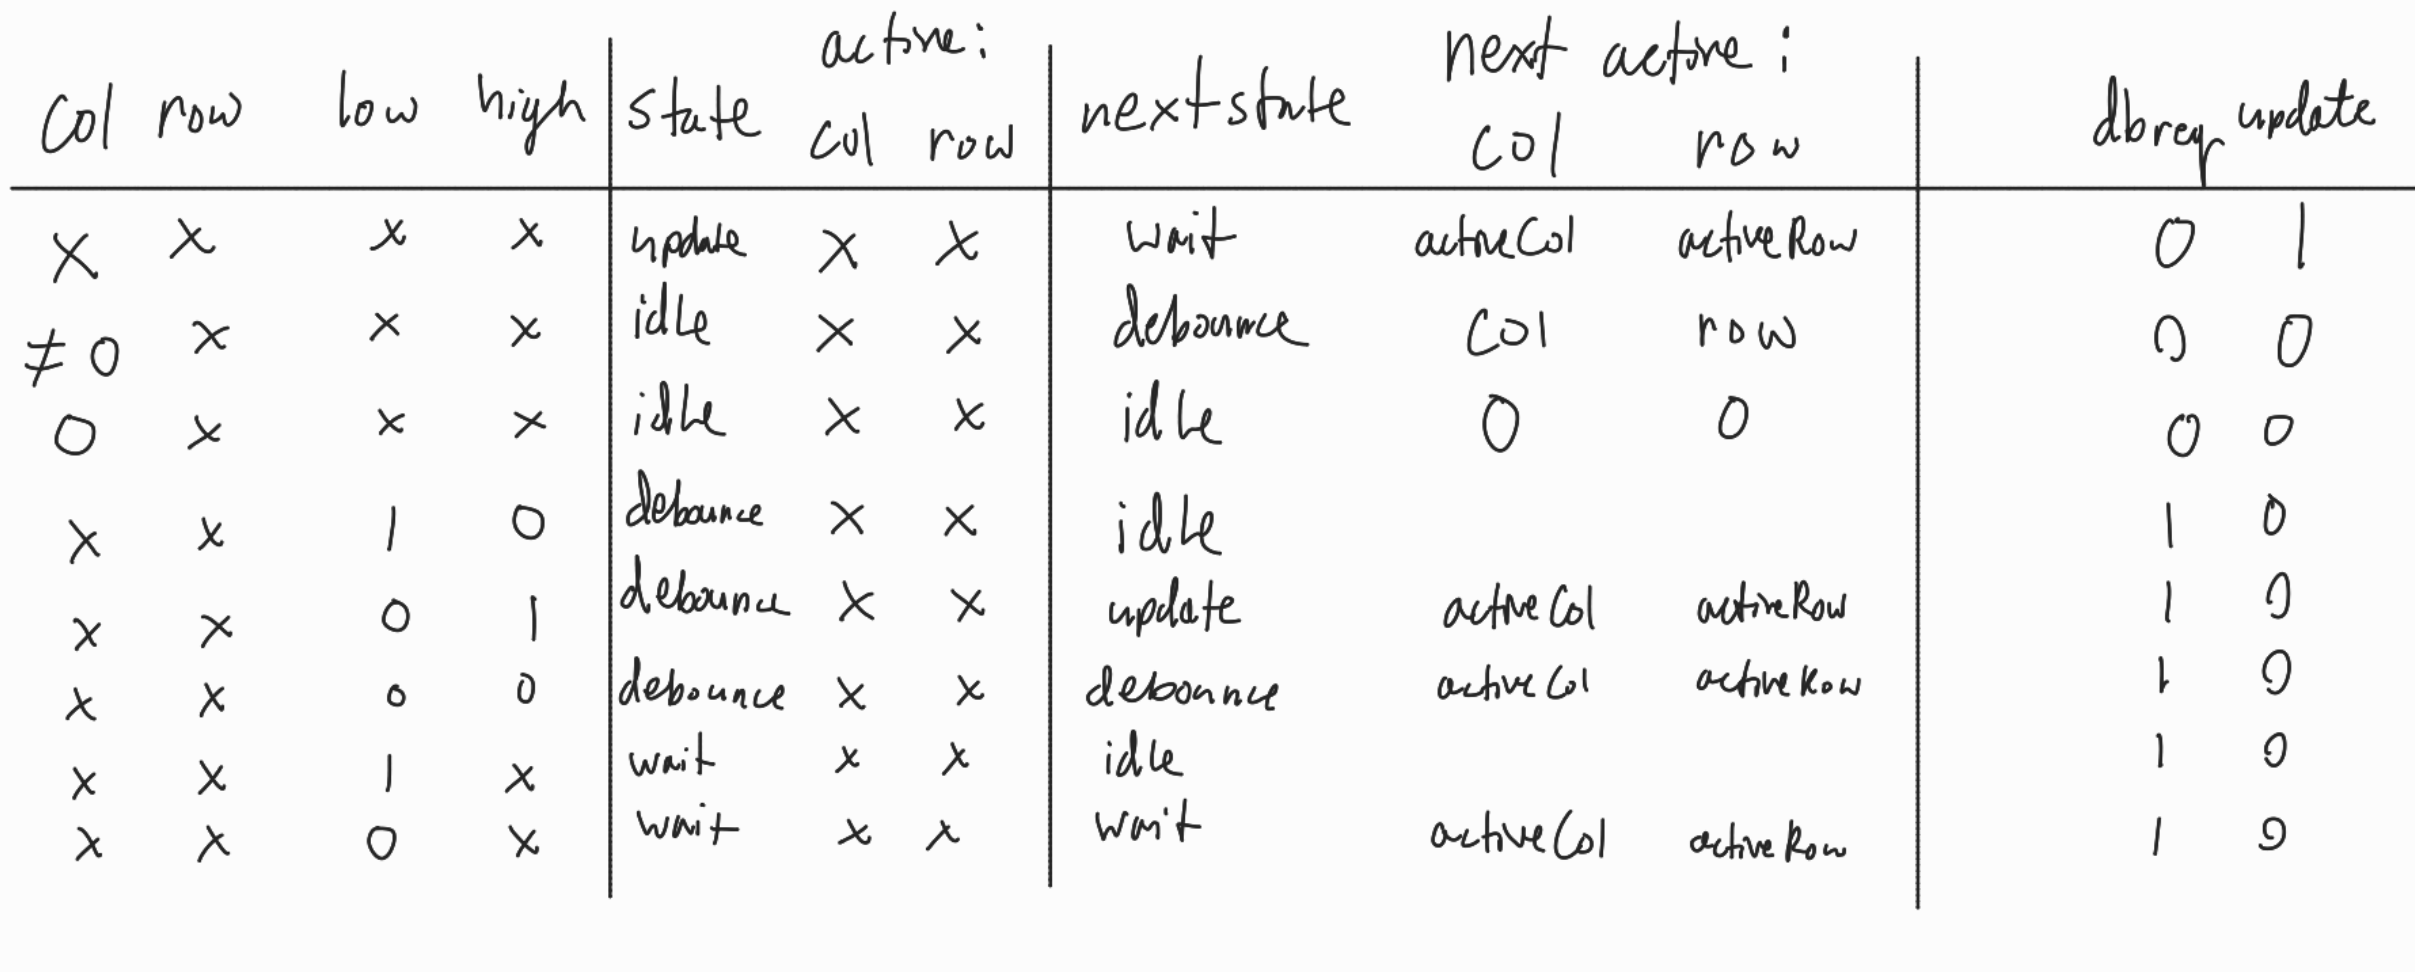 active: next active:
col row low high state col row nextstate col row dbreq update
x x x x update x x wait activeCol activeRow 0 1
≠0 x x x idle x x debounce col row 0 0
0 x x x idle x x idle 0 0 0 0
x x 1 0 debounce x x idle 1 0
x x 0 1 debounce x x update activeCol activeRow 1 0
x x 0 0 debounce x x debounce activeCol activeRow 1 0
x x 1 x wait x x idle 1 0
x x 0 x wait x x wait activeCol activeRow 1 0